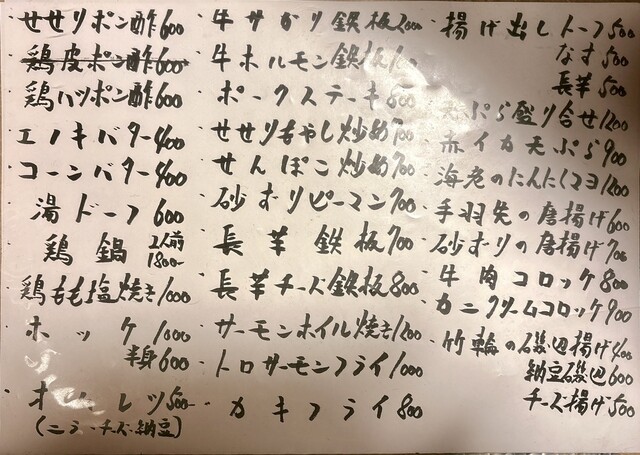 せせりポン酢 600
鶏皮ポン酢 600
鶏ハツポン酢 600
エノキバター 400
コーンバター 400
湯ドーフ 600
鶏鍋 2人前 1800-
鶏もも塩焼き 1000
ホッケ 1000
半身 600
オムレツ 500
(ニラ・チーズ・納豆)
牛サガリ鉄板
牛ホルモン鉄板
ポークステーキ 800
せせりもやし炒め 700
せんぽこ炒め 700
砂ずりピーマン 700
長芋鉄板 700
長芋チーズ鉄板 800
サーモンホイル焼き 1200
トロサーモンフライ 1000
カキフライ 800
揚げ出しトーフ 500
なす 500
長芋 500
天ぷら盛り合せ 1200
赤イカ天ぷら 900
海老のにんにくマヨ 1200
手羽先の唐揚げ 600
砂ずりの唐揚げ 700
牛肉コロッケ 800
カニクリームコロッケ 900
竹輪の磯辺揚げ 400
納豆磯辺 600
チーズ揚げ 500